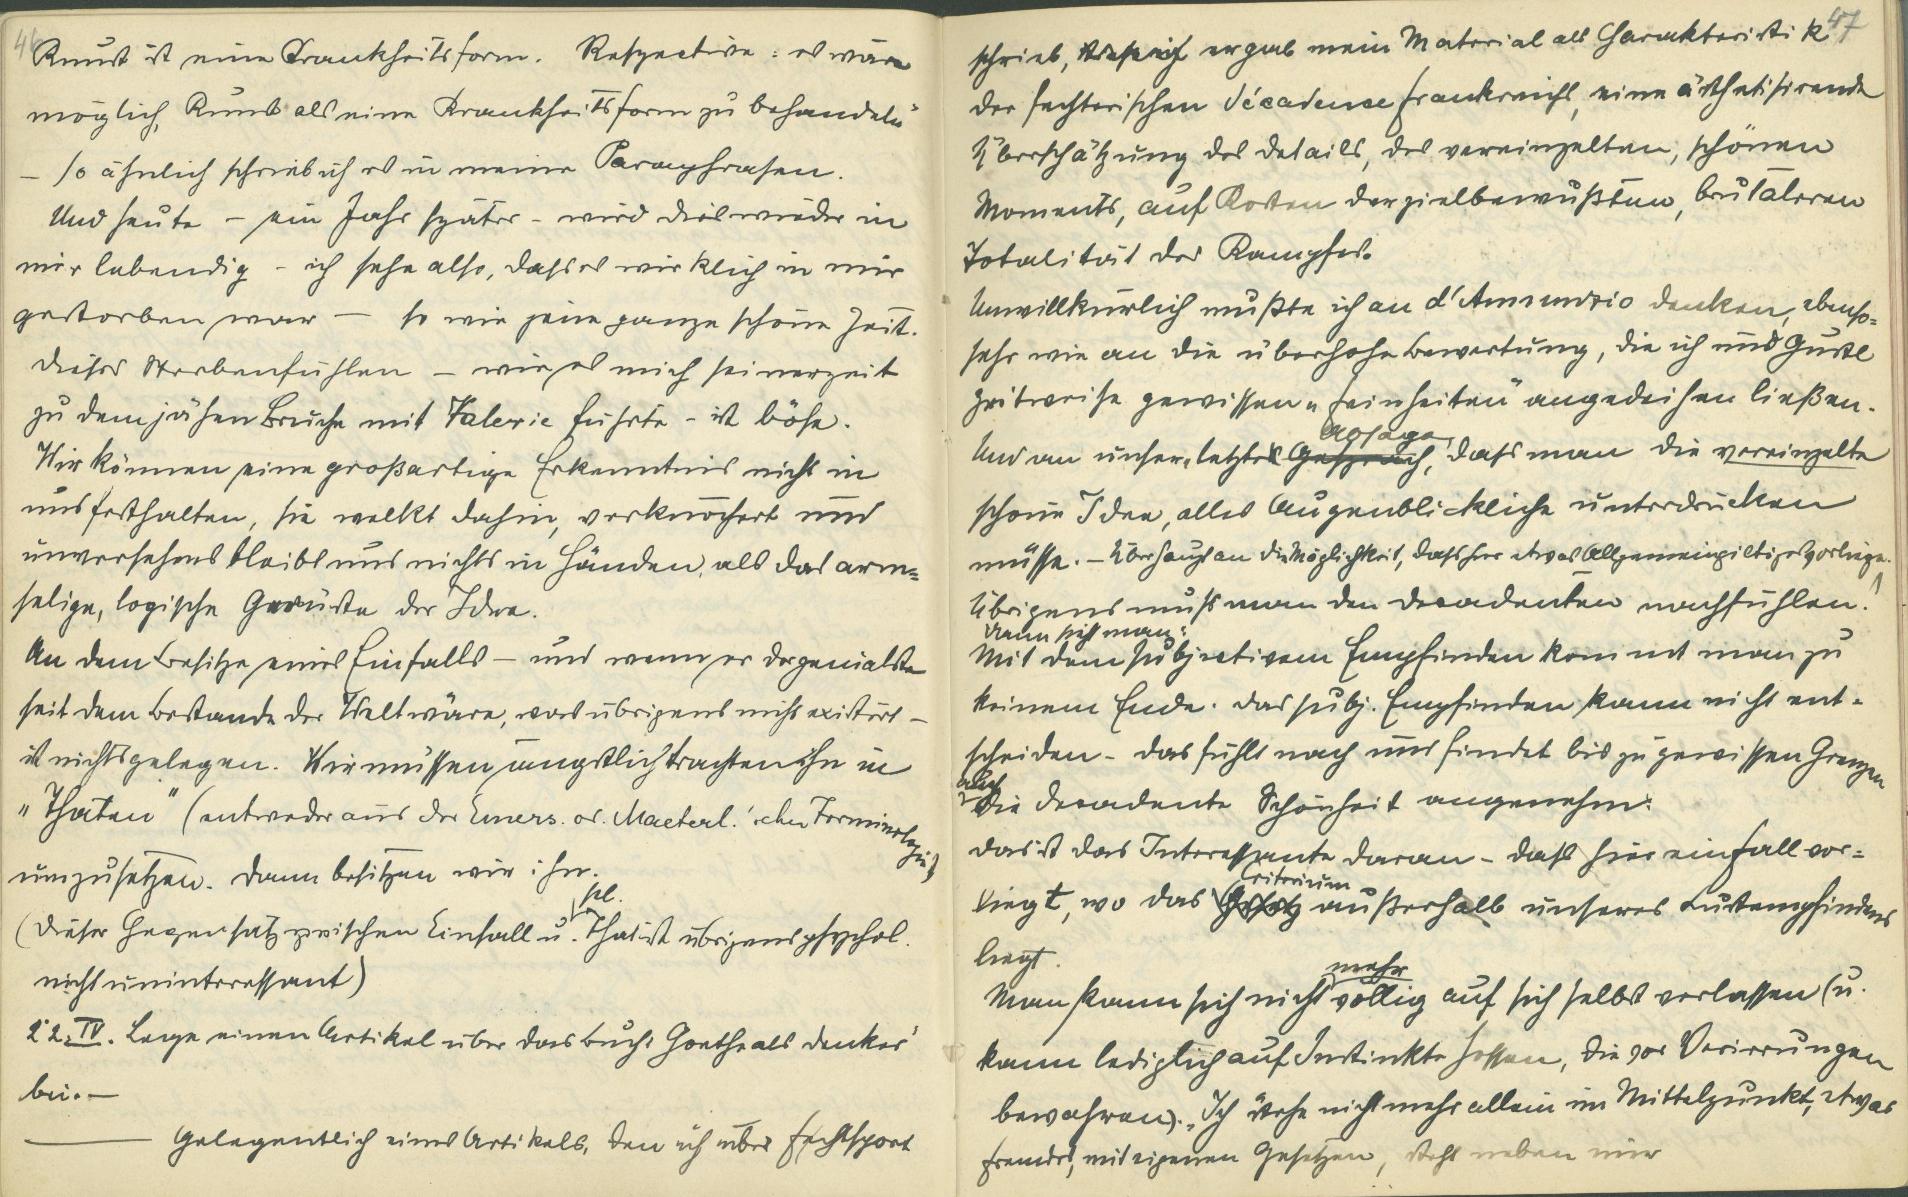 46
Kunst ist eine Krankheitsform. Respective: es wäre
möglich, Kunst als eine Krankheitsform zu behandeln"
– so ähnlich schrieb ich es in meine Paraphrasen.
Und heute – ein Jahr später – wird dies wieder in
mir lebendig – ich sehe also, dass es wirklich in mir
gestorben war – so wie jene ganze schöne Zeit.
Dieses Sterbenfühlen – wie es mich seinerzeit
zu dem jähen Bruche mit Valerie führte – ist böse.
Wir können eine großartige Erkenntnis nicht in
uns festhalten, sie welkt dahin, verknöchert und
unversehens bleibt uns nichts in Händen, als das arm=
selige, logische Gerüste der Idee.
An dem Besitze eines Einfalls – und wenn er der genialste
seit dem Bestande der Welt wäre, was übrigens nicht existirt –
ist nichts gelegen. Wir müssen ängstlich trachten ihn in
„Thaten" (entweder aus der Emers. od. Maeterl.'schen Terminologie)
umzusetzen. Dann besitzen wir ihn.
sel.
(Dieser Gegensatz zwischen Einfall u. That ist übrigens psychol.
nicht uninteressant)
22. IV. Lege einen Artikel über das Buch: Goethe als Denker'
bei. –
Gelegentlich eines Artikels, den ich über Fechtsport
47
schrieb, ergab mein Material als Charakteristik
der fechterischen Décadence Frankreichs, eine ästhetisirende
Überschätzung des Details, des vereinzelten, schönen
Moments, auf Kosten der zielbewußten, brutaleren
Totalität des Kampfes.
Unwillkürlich mußte ich an d'Annunzio denken, ebenso=
sehr wie an die überhohe Bewertung, die ich und Gustl
zeitweise gewissen „Feinheiten" angedeihen ließen.
Absage
Und an unser letztes Gespräch, dass man die vereinzelte
schöne Idee, alles Augenblickliche unterdrücken
müsse. – Überhaupt an die Möglichkeit, dass hier etwas Allgemeingiltiges vorliege.
Übrigens muss man den Decadenten nachfühlen!
Dann sieht man:
Mit dem subjectivem Empfinden kommt man zu
keinem Ende. Das subj. Empfinden kann nicht ent=
scheiden – das fühlt nach und findet bis zu gewissen Grenzen
auch
die decadente Schönheit angenehm.
Das ist das Interessante daran – dass hier ein Fall vor=
Criterium
liegt, wo das Gesetz außerhalb unseres Lustempfindens
liegt.
mehr
Man kann sich nicht völlig auf sich selbst verlassen (u.
kann lediglich auf Instinkte hoffen, die vor Verirrungen
bewahren). „Ich stehe nicht mehr allein im Mittelpunkt, etwas
Fremdes, mit eigenen Gesetzen, steht neben mir